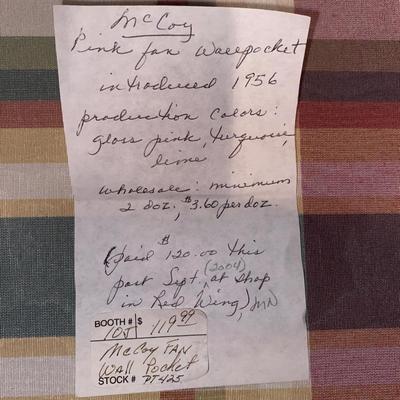 McCoy
Pink fan wallpocket
introduced 1956
production colors:
gloss pink, turquoise,
lime
wholesale: minimum
2 doz., $3.60 per doz.
(paid $120.00 this
past Sept. (2004) at shop
in Red Wing, MN)
BOOTH # 105 $ 119.99
McCoy FAN
WALL Pocket
STOCK # PT425